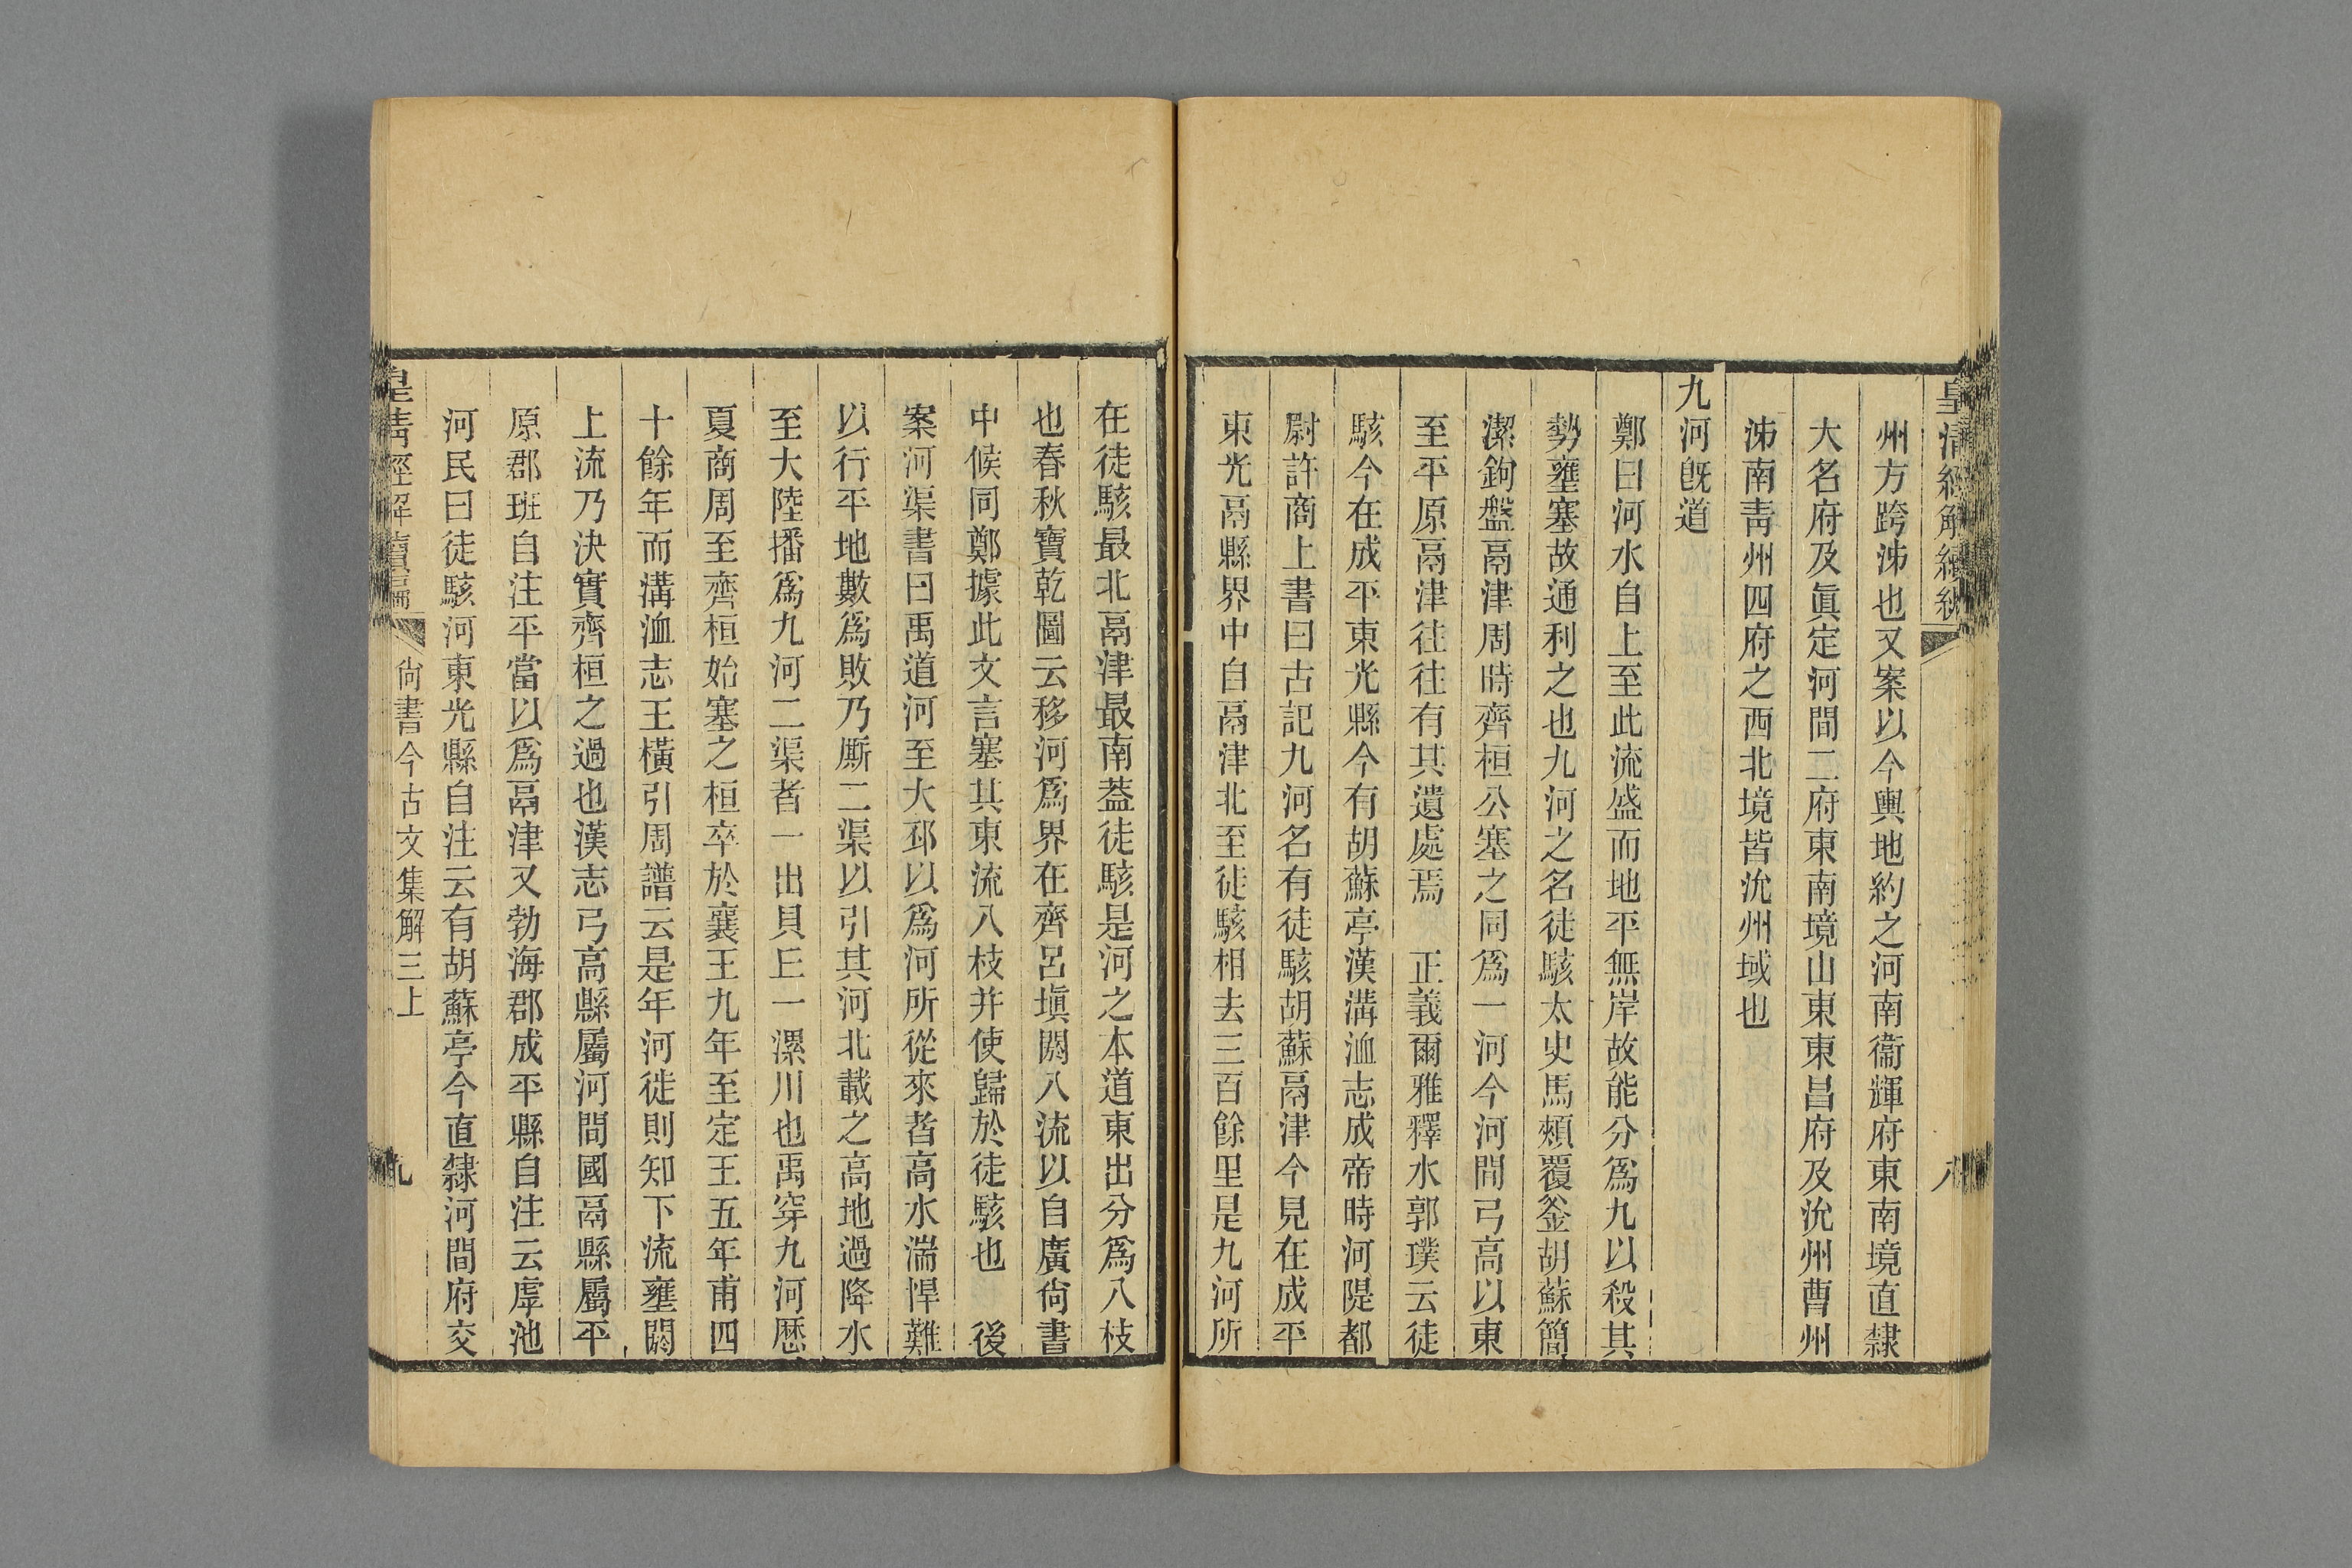 皇清經解續編
八
州方跨泲也又案以今輿地約之河南衞輝府東南境直隸
大名府及眞定河間二府東南境山東東昌府及沇州曹州
泲南靑州四府之西北境皆沇州域也
九河旣道
鄭曰河水自上至此流盛而地平無岸故能分爲九以殺其
勢壅塞故通利之也九河之名徒駭太史馬頰覆釜胡蘇簡
潔鉤盤鬲津周時齊桓公塞之同爲一河今河間弓高以東
至平原鬲津往往有其遺處焉　正義爾雅釋水郭璞云徒
駭今在成平東光縣今有胡蘇亭漢溝洫志成帝時河隄都
尉許商上書曰古記九河名有徒駭胡蘇鬲津今見在成平
東光鬲縣界中自鬲津北至徒駭相去三百餘里是九河所
在徒駭最北鬲津最南葢徒駭是河之本道東出分爲八枝
也春秋寶乾圖云移河爲界在齊呂塡閼八流以自廣尙書
中候同鄭據此文言塞其東流八枝并使歸於徒駭也　後
案河渠書曰禹道河至大邳以爲河所從來者高水湍悍難
以行平地數爲敗乃厮二渠以引其河北載之高地過降水
至大陸播爲九河二渠者一出貝丘一漯川也禹穿九河歷
夏商周至齊桓始塞之桓卒於襄王九年至定王五年甫四
十餘年而溝洫志王橫引周譜云是年河徙則知下流壅閼
上流乃決實齊桓之過也漢志弓高縣屬河間國鬲縣屬平
原郡班自注平當以爲鬲津又勃海郡成平縣自注云虖池
河民曰徒駭河東光縣自注云有胡蘇亭今直隸河間府交
皇淸經解續編
尙書今古文集解三上
九